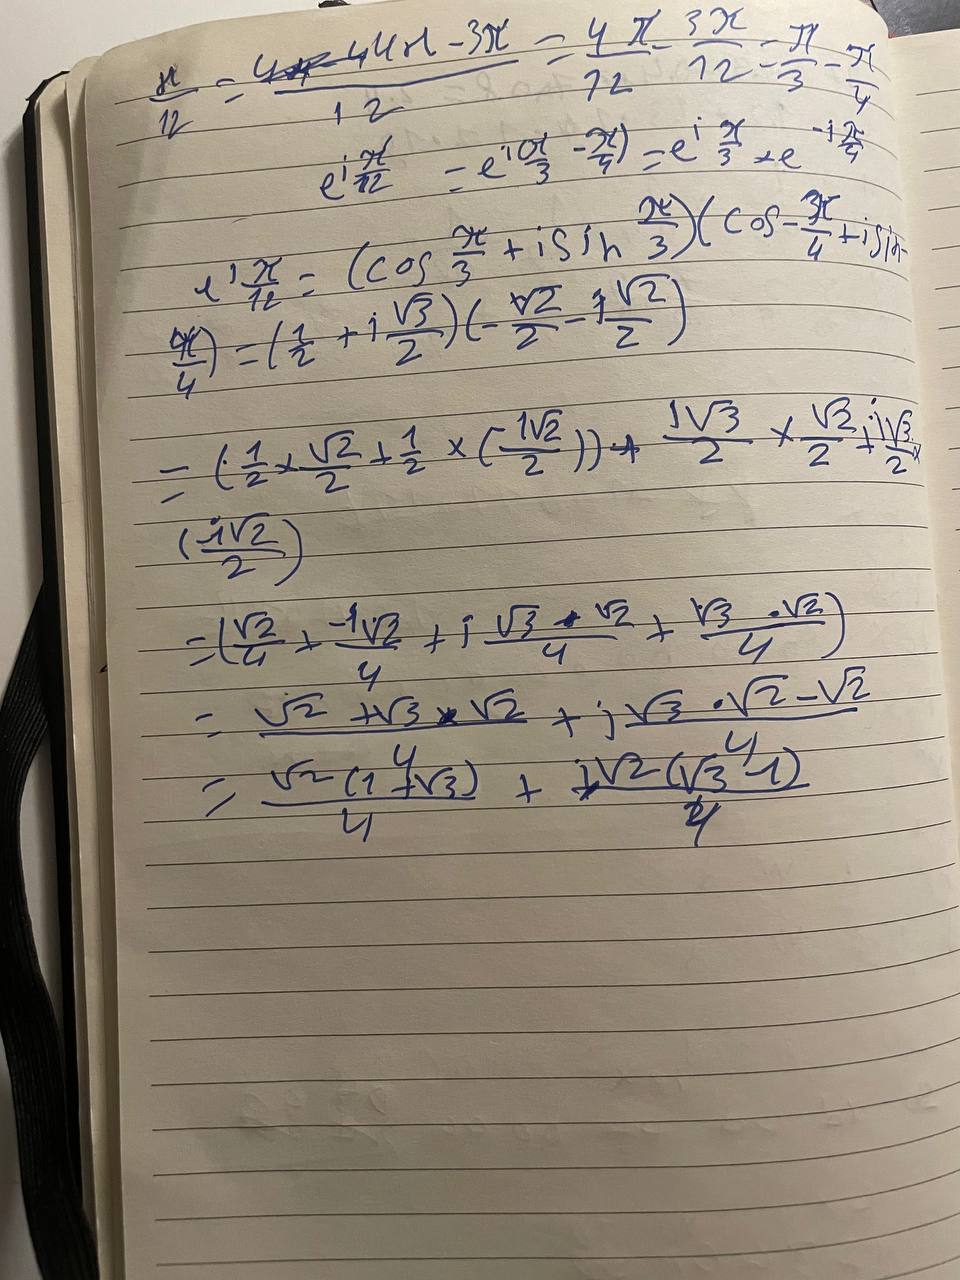 π/12 = (4π - 3π)/12 = 4π/12 - 3π/12 = π/3 - π/4
e^(iπ/12) = e^(i(π/3 - π/4)) = e^(iπ/3) × e^(-iπ/4)
e^(iπ/12) = (cos π/3 + i sin π/3)(cos - 3π/4 + i sin -
π/4) = (1/2 + i √3/2)(-√2/2 - i√2/2)
= (1/2 × √2/2 + 1/2 × (-i√2/2)) + i√3/2 × √2/2 + i√3/2 ×
(-i√2/2)
= (√2/4 + -i√2/4 + i (√3 · √2)/4 + (√3 · √2)/4)
= (√2 + √3 × √2)/4 + i (√3 · √2 - √2)/4
= √2(1 + √3)/4 + i√2(√3 - 1)/4